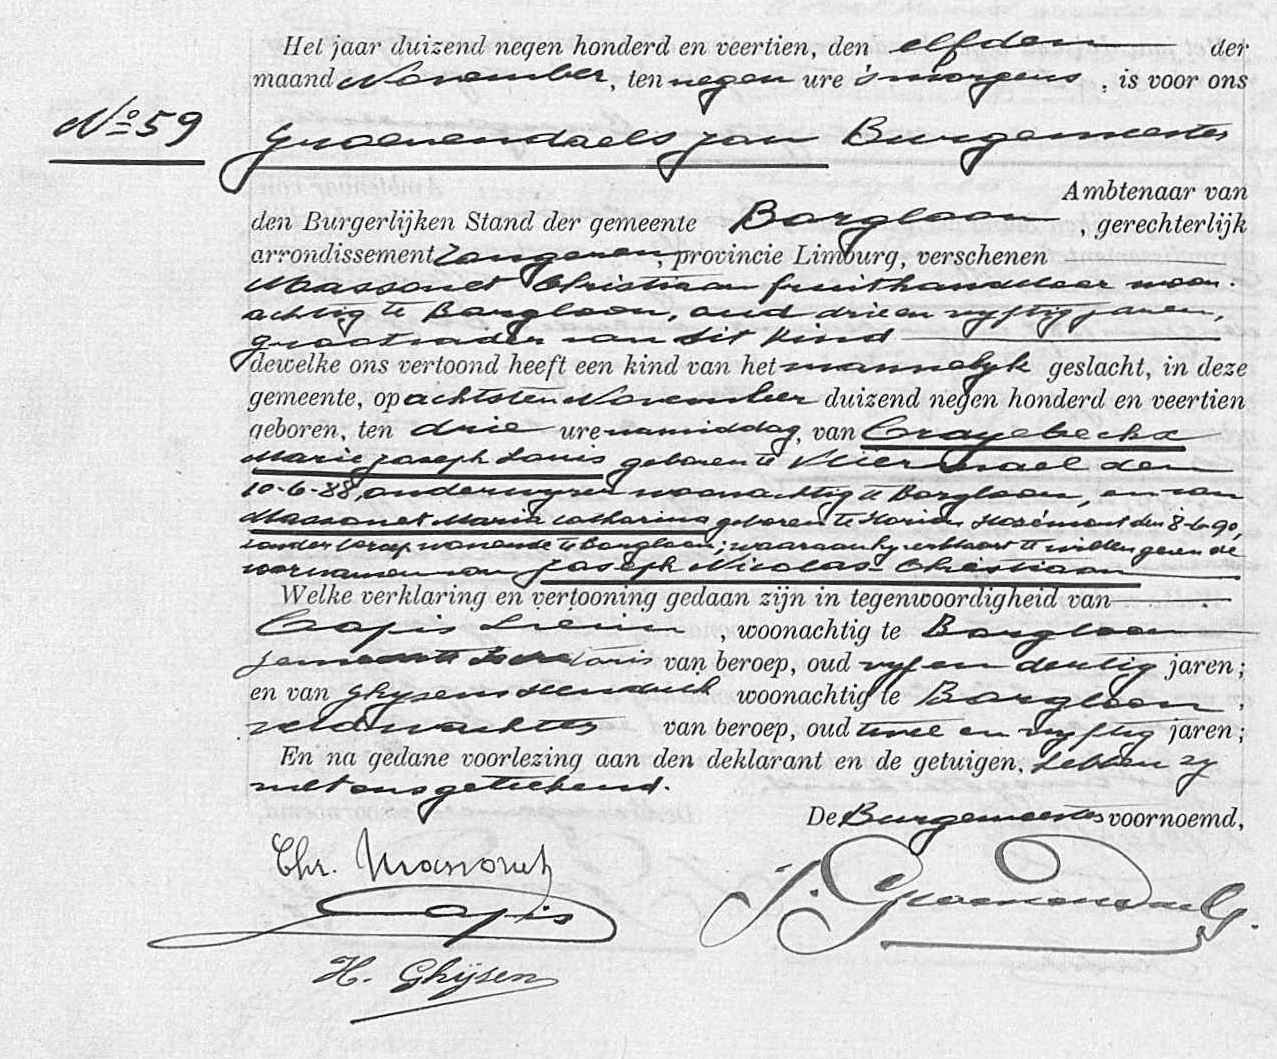 Het jaar duizend negen honderd en veertien, den elfden der
maand November, ten negen ure 's morgens, is voor ons
No 59
Groenendaels Jan Burgemeester
Ambtenaar van
den Burgerlijken Stand der gemeente Borgloon, gerechterlijk
arrondissement Tongeren, provincie Limburg, verschenen
Massonet Christiaan fruithandelaar woon-
achtig te Borgloon, oud drie en vyftig jaren,
grootvader van dit kind
dewelke ons vertoond heeft een kind van het mannelyk geslacht, in deze
gemeente, op achtsten November duizend negen honderd en veertien
geboren, ten drie ure namiddag, van Craybeckx
Marie Joseph Louis geboren te Vliermael den
10-6-88, onderwyzer woonachtig te Borgloon, en van
Massonet Maria Catharina geboren te Horion Hozémont den 8-6-90,
zonder beroep wonende te Borgloon; waaraan hy verklaart te willen geven de
voornamen van Joseph Nicolas Christiaan
Welke verklaring en vertooning gedaan zijn in tegenwoordigheid van
Copis Lievin, woonachtig te Borgloon
gemeente secretaris van beroep, oud vyf en dertig jaren;
en van Ghysens Hendrick woonachtig te Borgloon,
veldwachter van beroep, oud twee en vyftig jaren;
En na gedane voorlezing aan den deklarant en de getuigen, hebben zy
met ons geteekend.
De Burgemeester voornoemd,
Chr. Massonet
J. Groenendaels.
Copis
H. Ghijsen